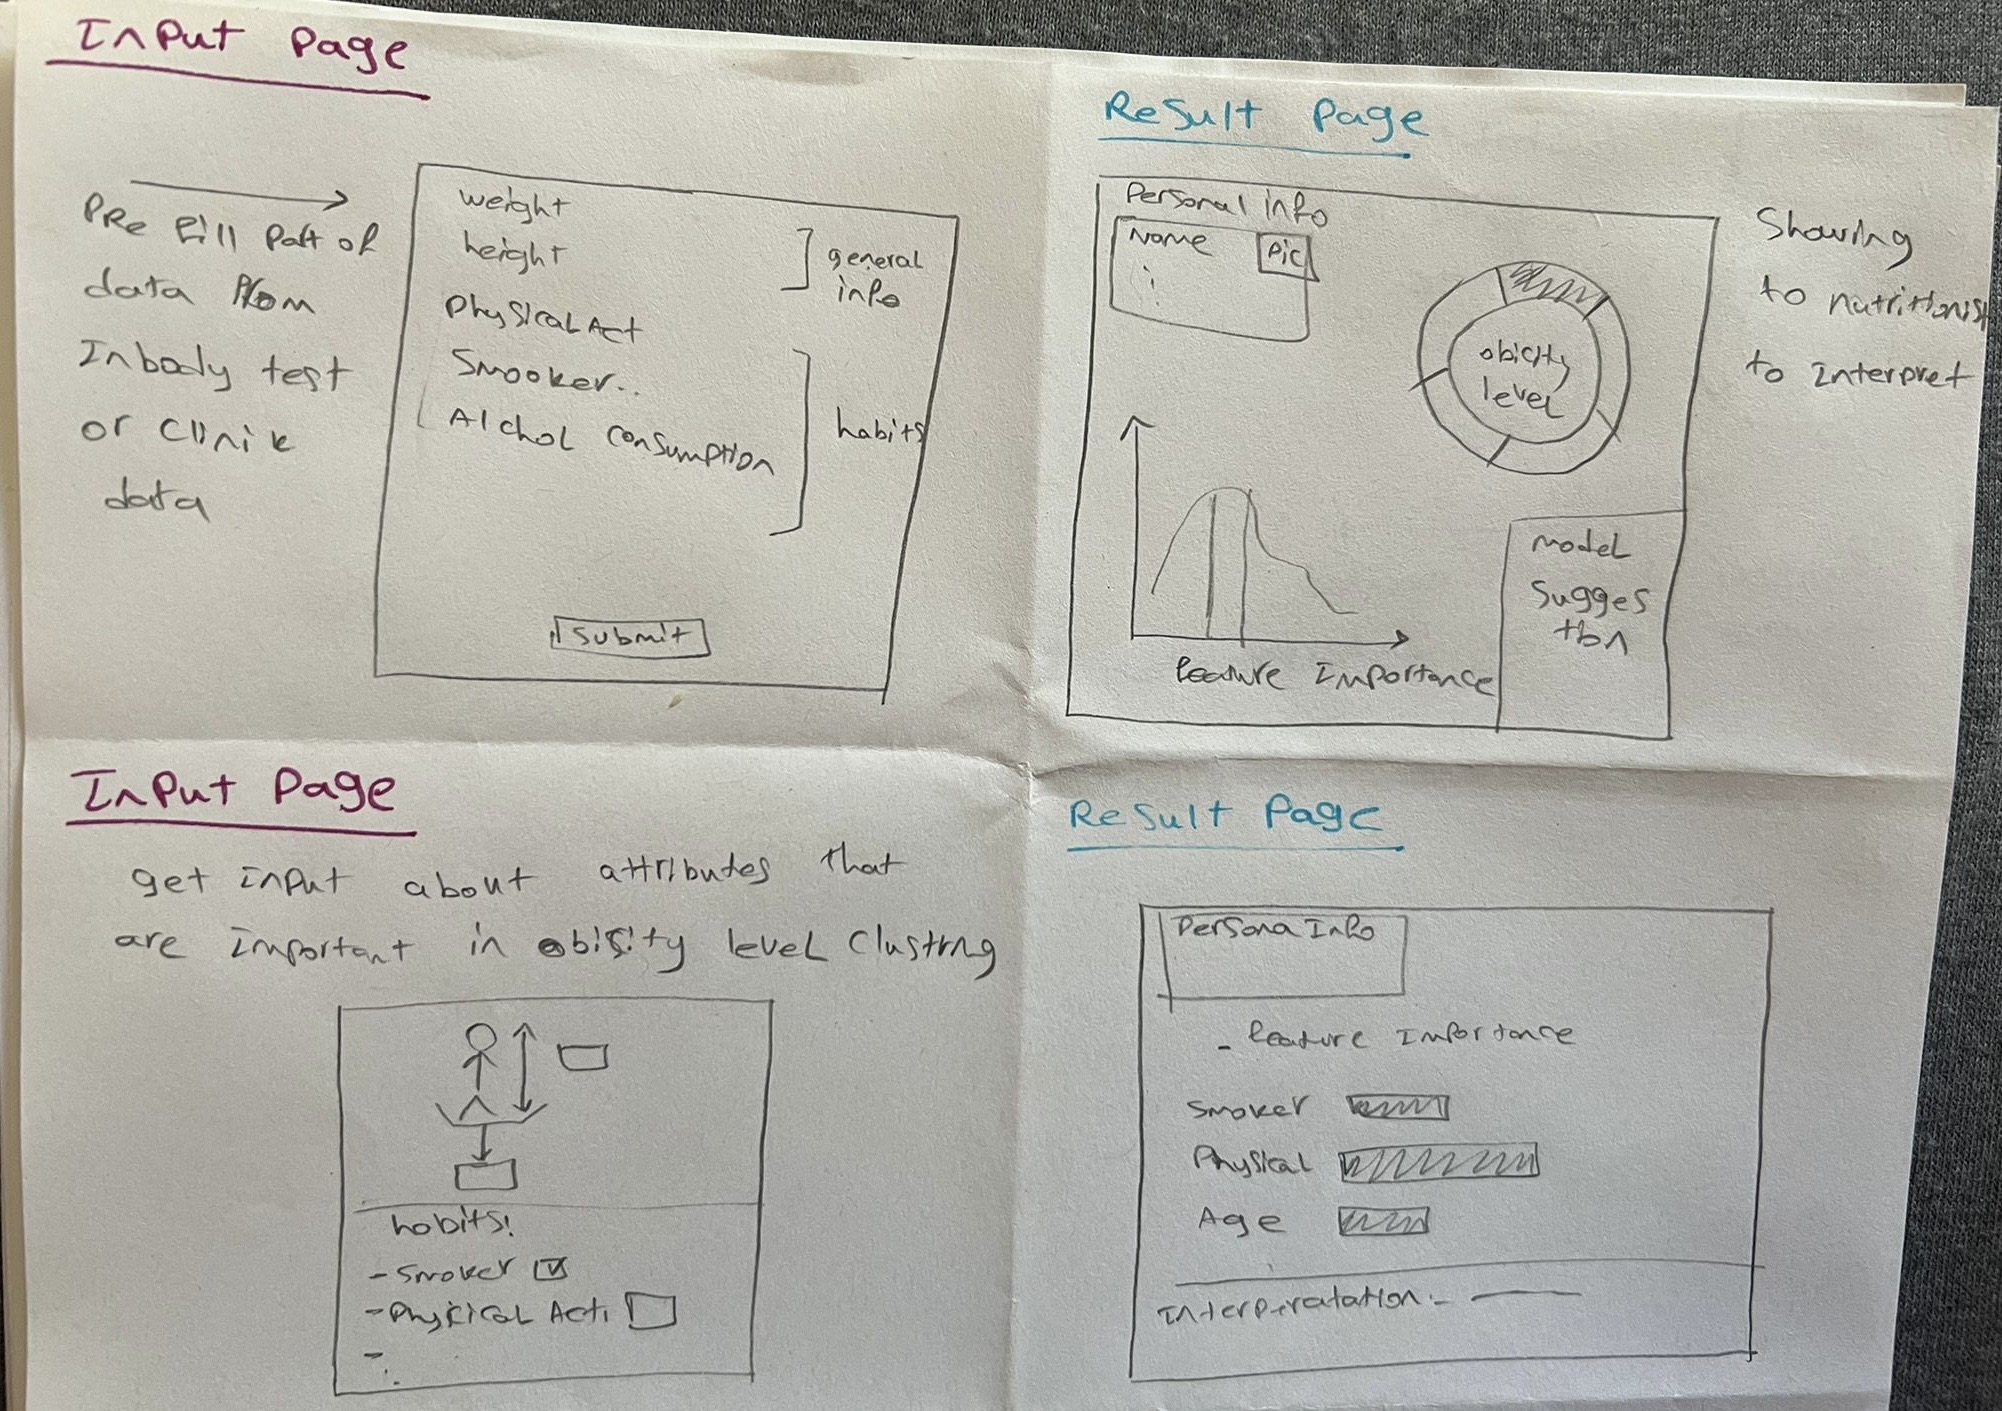 Input Page
PRe fill Part of
data from
Inbody test
or Clinik
data
weight
height
general
info
Physical Act
Smooker..
Alchol Consumption
habits
Submit
Result Page
Personal info
Name
Pic
obicity
level
Showing
to nutritionist
to Interpret
feature Importance
model
Sugges
tion
Input Page
get Input about attributes that
are Important in obisity level Clustring
habits:
- Smoker
- Physical Act.
Result Page
Persona Info
- feature Importance
Smoker
Physical
Age
Interpiratation:-